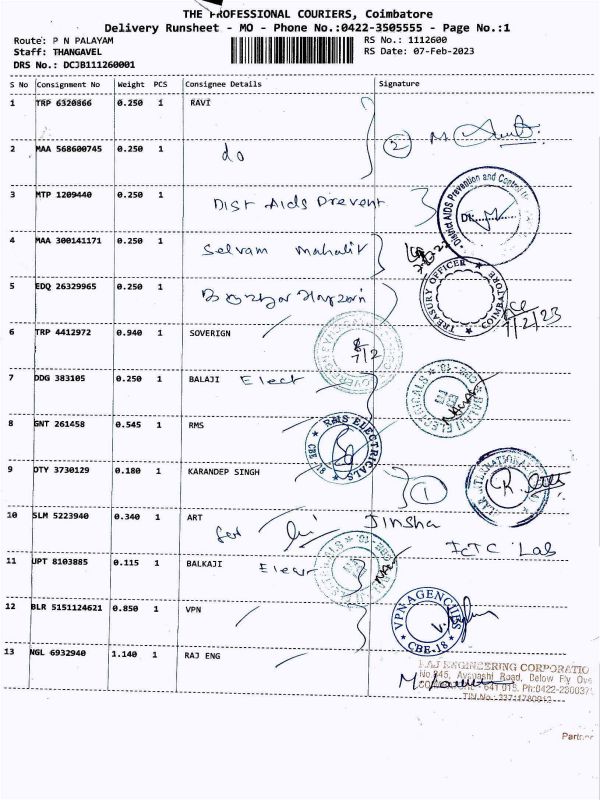 THE PROFESSIONAL COURIERS, Coimbatore
Delivery Runsheet - MO - Phone No.:0422-3505555 - Page No.:1
Route: P N PALAYAM
RS No.: 1112600
Staff: THANGAVEL
RS Date: 07-Feb-2023
DRS No.: DCJB111260001
S No Consignment No Weight PCS Consignee Details Signature
1 TRP 6320866 0.250 1 RAVI
2 MAA 568600745 0.250 1 do 2
3 MTP 1209440 0.250 1 Dist Aids Prevent
District AIDS Prevention and Control
4 MAA 300141171 0.250 1 Selvam
5 EDQ 26329965 0.250 1
TREASURY OFFICER COIMBATORE
7/2/23
6 TRP 4412972 0.940 1 SOVERIGN
7/2
7 DDG 383105 0.250 1 BALAJI Elect
BALAJI ELECTRICALS CBE-18
8 GNT 261458 0.545 1 RMS
RMS ELECTRICALS CBE
9 OTY 3730129 0.180 1 KARANDEP SINGH 1
INTERNATIONAL
10 SLM 5223940 0.340 1 ART Jinsha
ICTC Lab
11 UPT 8103885 0.115 1 BALKAJI Elect
12 BLR 5151124621 0.850 1 VPN
VPN AGENCIES CBE-18
13 NGL 6932940 1.140 1 RAJ ENG
RAJ ENGINEERING CORPORATIO
No.845, Avanashi Road, Below Fly Ove
641 018. Ph:0422-230037
Partner